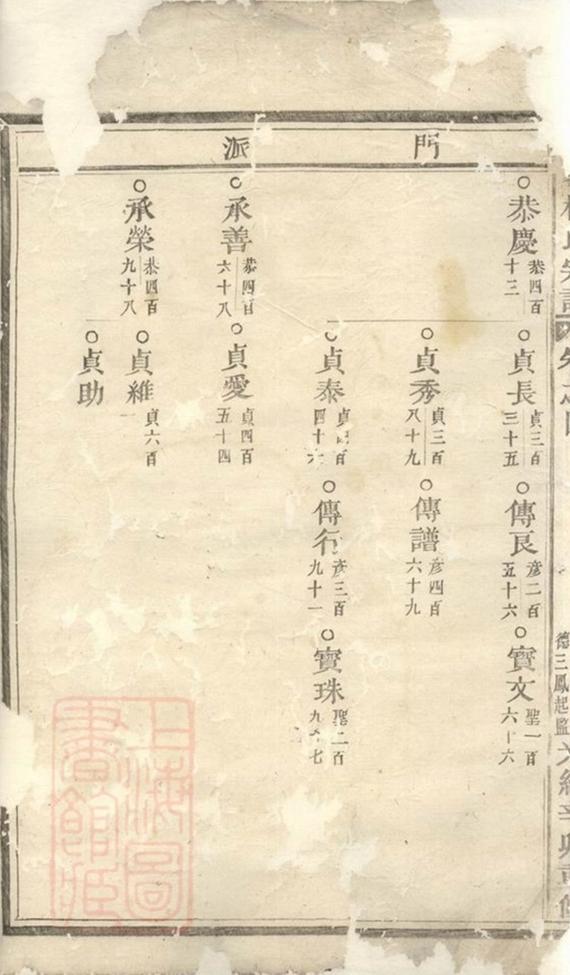 門 派
恭慶 恭四百十三
貞長 貞三百三十五
傳良 彦二百五十六
寳文 聖一百六十六
貞秀 貞三百八十九
傳譜 彦四百六十九
貞泰
傳行 彦三百九十一
寳珠 聖二百
承善 恭四百六十八
貞愛 貞四百五十四
承榮 恭四百九十八
貞維 貞六百一
貞助
德三鳳起監
辛卯重修
上海圖書館